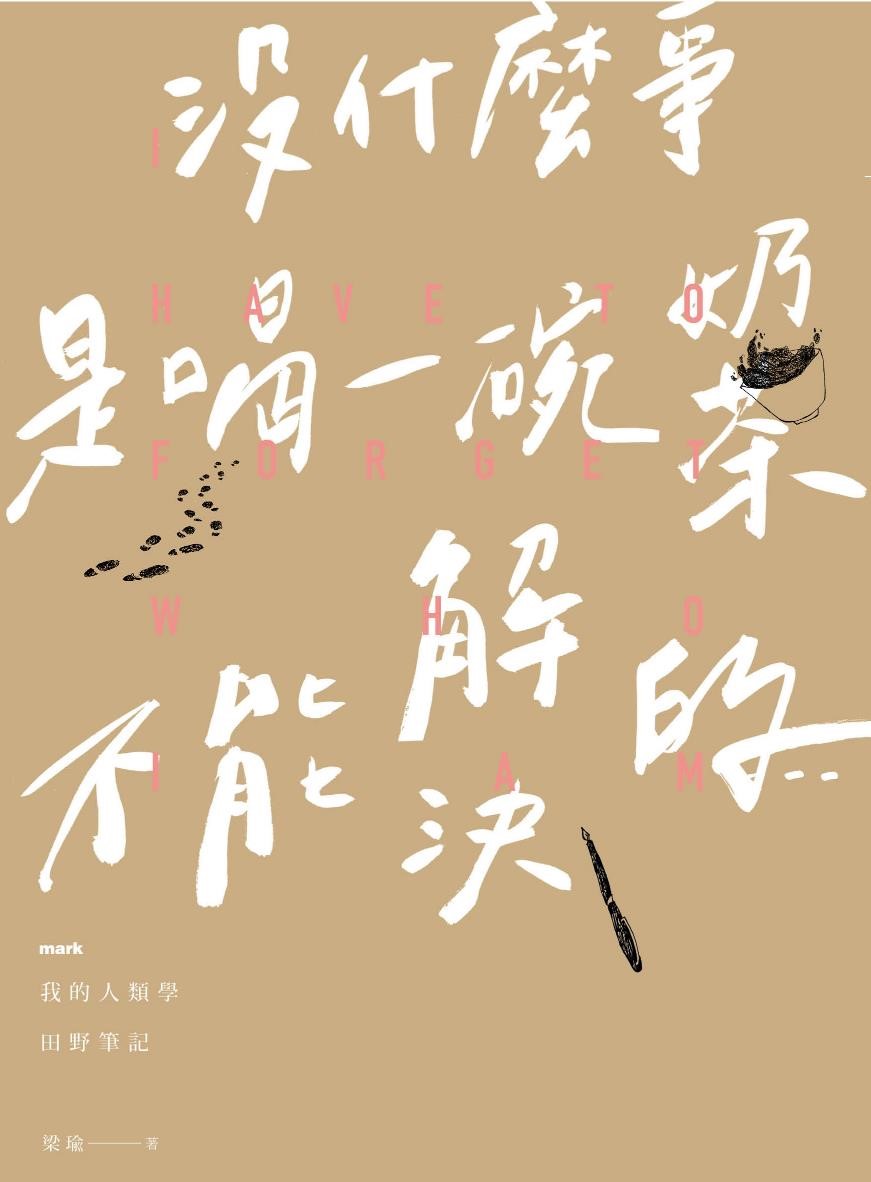 沒什麼事
是喝一碗奶茶
不能解決的…
I
HAVE TO
FORGET
WHO
I AM
mark
我的人類學
田野筆記
梁瑜——著